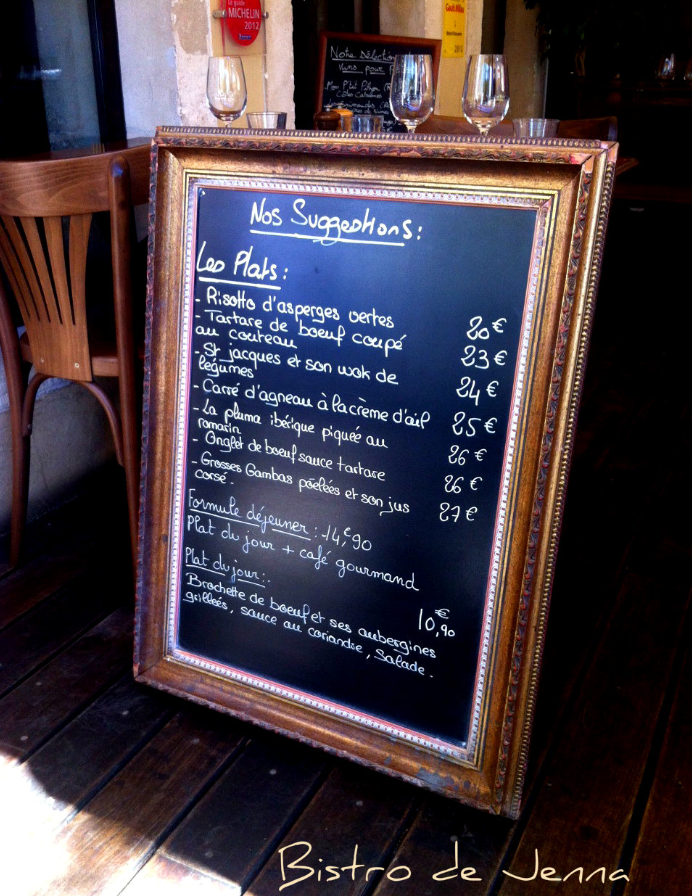 le guide
MICHELIN
2012
Notre Sélection
Vins pour
Nos Suggestions:
Les Plats:
- Risotto d'asperges vertes 20€
- Tartare de boeuf coupé
au couteau 23€
- St jacques et son wok de
légumes 24€
- Carré d'agneau à la crème d'ail 25€
- La pluma ibérique piquée au
romarin 26€
- Onglet de boeuf sauce tartare 26€
- Grosses Gambas poêlées et son jus
corsé. 27€
Formule déjeuner : 14,€90
Plat du jour + café gourmand
Plat du jour:
Brochette de boeuf et ses aubergines 10,€90
grillées, sauce au coriandre, Salade.
Bistro de Jenna